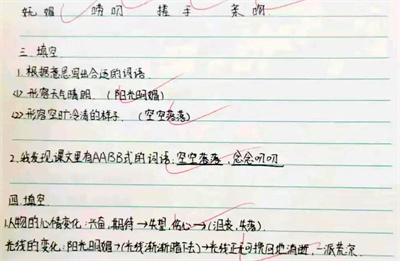 妩媚 唠叨 搓手 荒凉
三、填空
1.根据意思写出合适的词语
(1)形容天气晴朗。(阳光明媚)
(2)形容空旷冷清的样子。(空空落落)
2.我发现课文里有AABB式的词语:空空落落,念念叨叨
四、填空
1.人物的心情变化:兴奋,期待→失望,伤心→(沮丧,失落)
光线的变化:阳光明媚→(光线渐渐暗下去)→光线正无可挽回地消逝,一派荒凉